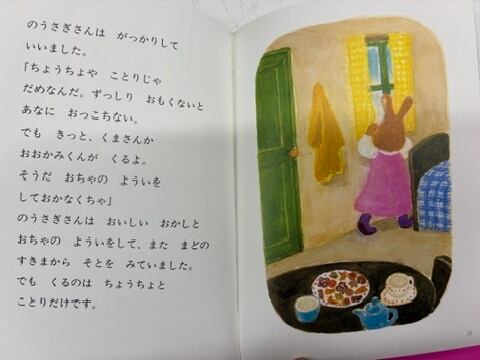 のうさぎさんは　がっかりして
いいました。
「ちょうちょや　ことりじゃ
だめなんだ。ずっしり　おもくないと
あなに　おっこちない。
でも　きっと、くまさんか
おおかみくんが　くるよ。
そうだ　おちゃの　よういを
しておかなくちゃ」
のうさぎさんは　おいしい　おかしと
おちゃの　よういをして、また　まどの
すきまから　そとを　みていました。
でも　くるのは　ちょうちょと
ことりだけです。